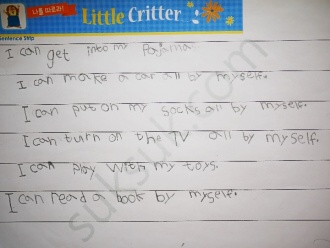 나를 따르라!
Little Critter
Sentence Strip
I can get into my Pajama.
I can make a car all by myself.
I can put on my socks all by myself.
I can turn on the TV all by myself.
I can play with my toys.
I can read a book by myself.
suksuk.com